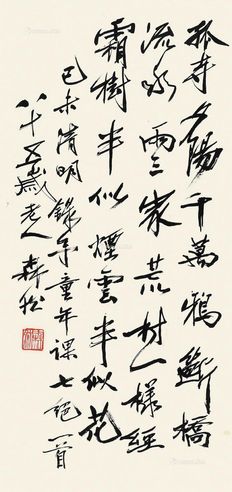 孤寺夕陽千萬鴉斷橋
流水兩三家荒村一樣經
霜樹半似煙雲半似花
己未清明錄予童年課七絕一首
八十五歲老人森然